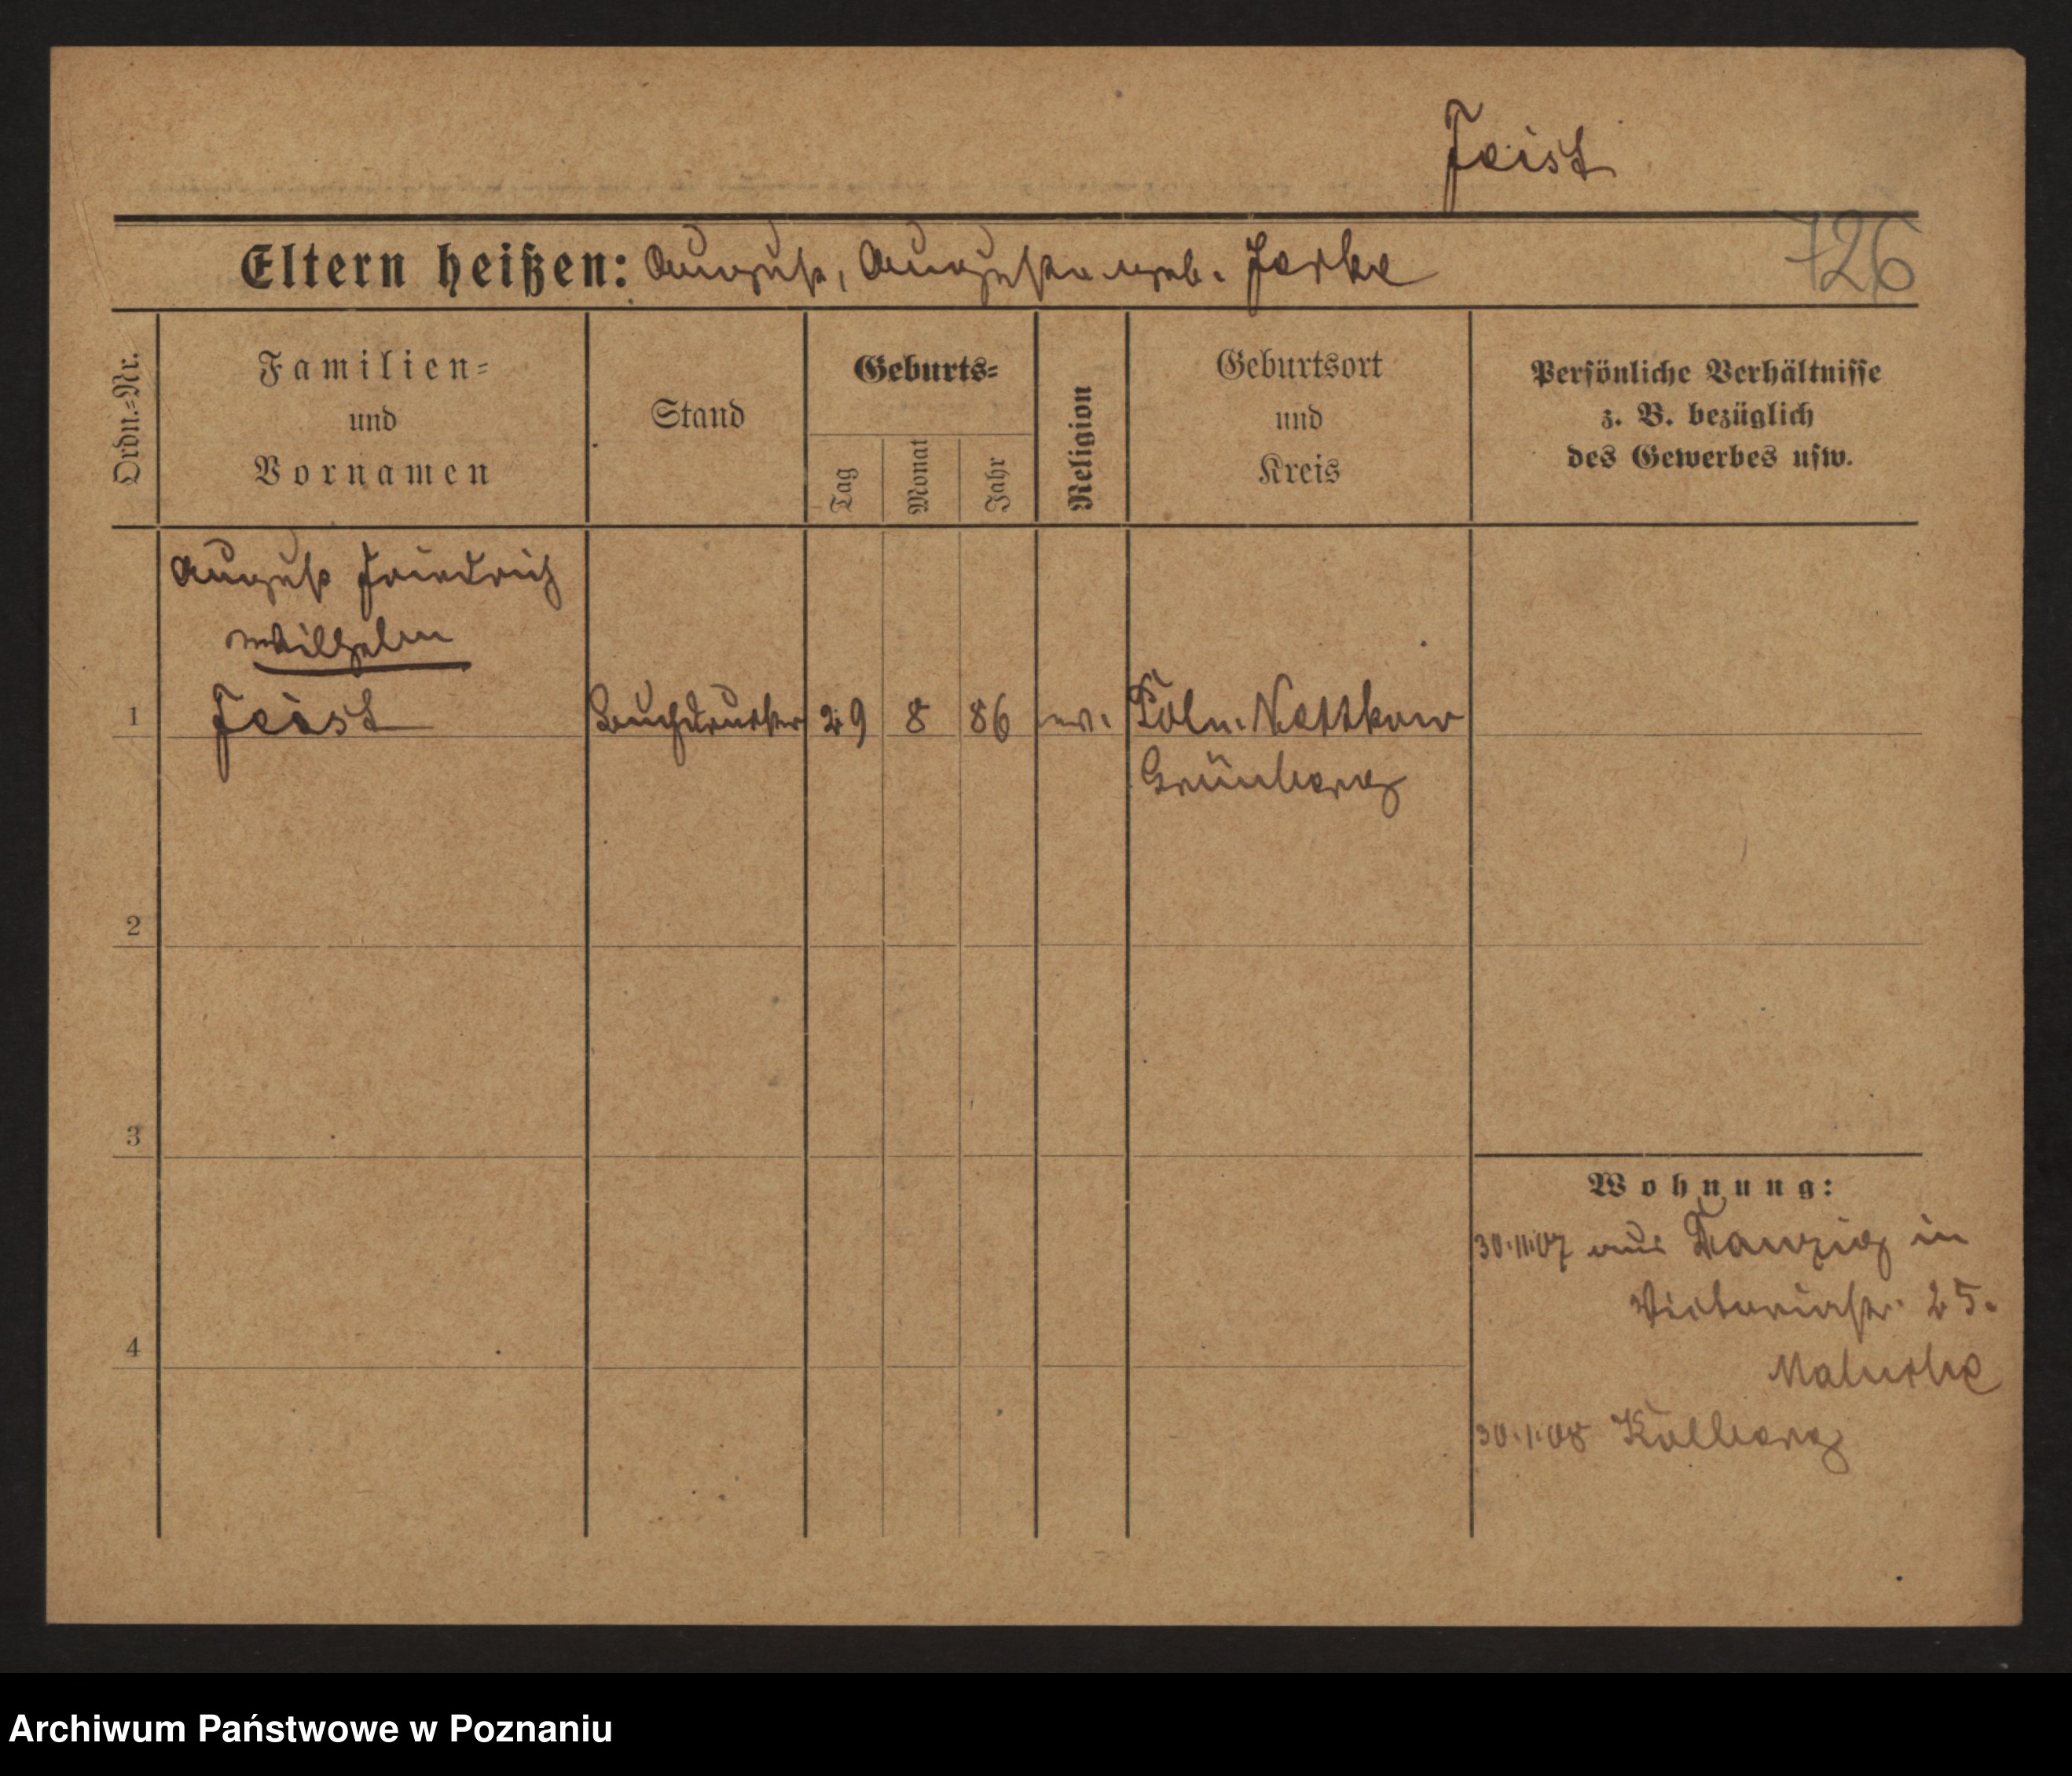 Feist
726
Eltern heißen: August, Auguste geb. Jerke
Ordn.-Nr.
Familien- und Vornamen
Stand
Geburts-
Tag
Monat
Jahr
Religion
Geburtsort und Kreis
Persönliche Verhältnisse
z. B. bezüglich
des Gewerbes usw.
August Friedrich
Wilhelm
1 Feist Buchdrucker 29 8 86 ev. Poln. Nettkow
Grünberg
2
3
4
Wohnung:
30.11.07 aus Danzig in
Victoriastr. 25.
30.1.08 Kolberg
Archiwum Państwowe w Poznaniu